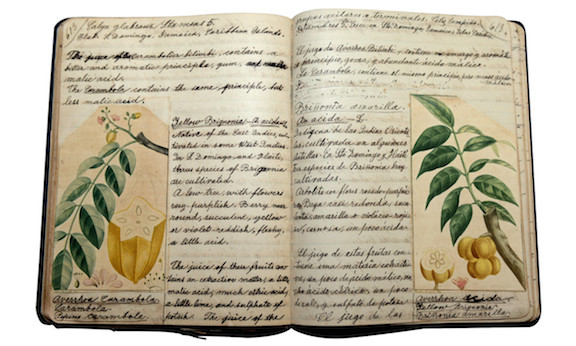 Calyx glabrous, Stamens 5.
Hab. St Domingo, Jamaica, Caribbean Islands.
The juice of Carambolier bilimbi, contains a
bitter and aromatic principle, gum, and
matic acid.
The Carambola contains the same principle, but
less malic acid.
Yellow Brignonia - A acida - L
Native of the East Indies, cul-
tivated in some West Indies.
In St Domingo and Haiti,
various species of Brignonia
are cultivated.
A low tree, with flowers
very purplish. Berry, nut
round, succulent, yellow
or violet-reddish, fleshy,
a little acid.
The juice of these fruits con-
tains an extractive matter, a little
malic acid, much citric acid,
a little lime, and sulphate of
potash. The juice of the
Averrhoa Carambola
Carambola
Pepino carambolo
axilares o terminales. Caliz lampiño.
613
Estambres 5. Crece en Sto Domingo, Jamaica, Islas Caribes
El jugo de Averrhoa Bilimbi, contiene un amargo y aromá-
tico principio, goma, y abundante ácido málico.
La Carambola, contiene el mismo principio, pero menos ácido
Brissonia amarilla.
An acida - L.
Indígena de las Indias Orienta-
les, cultivada en algunas
Antillas. En Sto Domingo y Haití
especies de Brissonia hay
cultivadas.
Arbolito con flores
Baya casi redonda,
amarilla o violacio-roji-
za, carnosa, un poco acida.
El jugo de estas frutas con-
tiene una materia extracti-
va, un poco de ácido málico, mu-
cho ácido cítrico, un poco
de cal, y sulfato de potasa.
El jugo de las
Averrhoa acida
Yellow Brignonia
Brissonia amarilla